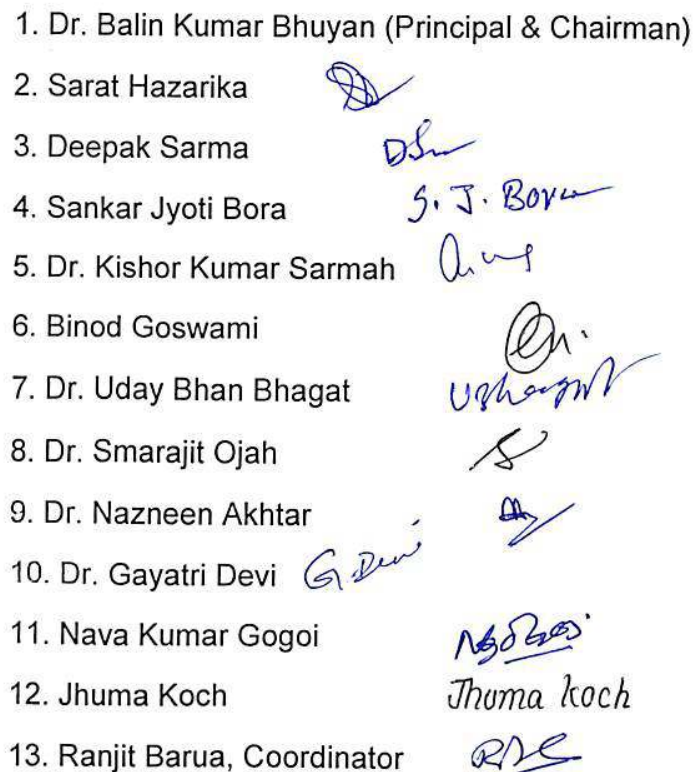 1. Dr. Balin Kumar Bhuyan (Principal & Chairman)
2. Sarat Hazarika
3. Deepak Sarma
4. Sankar Jyoti Bora S. J. Bora
5. Dr. Kishor Kumar Sarmah
6. Binod Goswami
7. Dr. Uday Bhan Bhagat UBhagat
8. Dr. Smarajit Ojah
9. Dr. Nazneen Akhtar
10. Dr. Gayatri Devi G. Devi
11. Nava Kumar Gogoi
12. Jhuma Koch Jhuma koch
13. Ranjit Barua, Coordinator